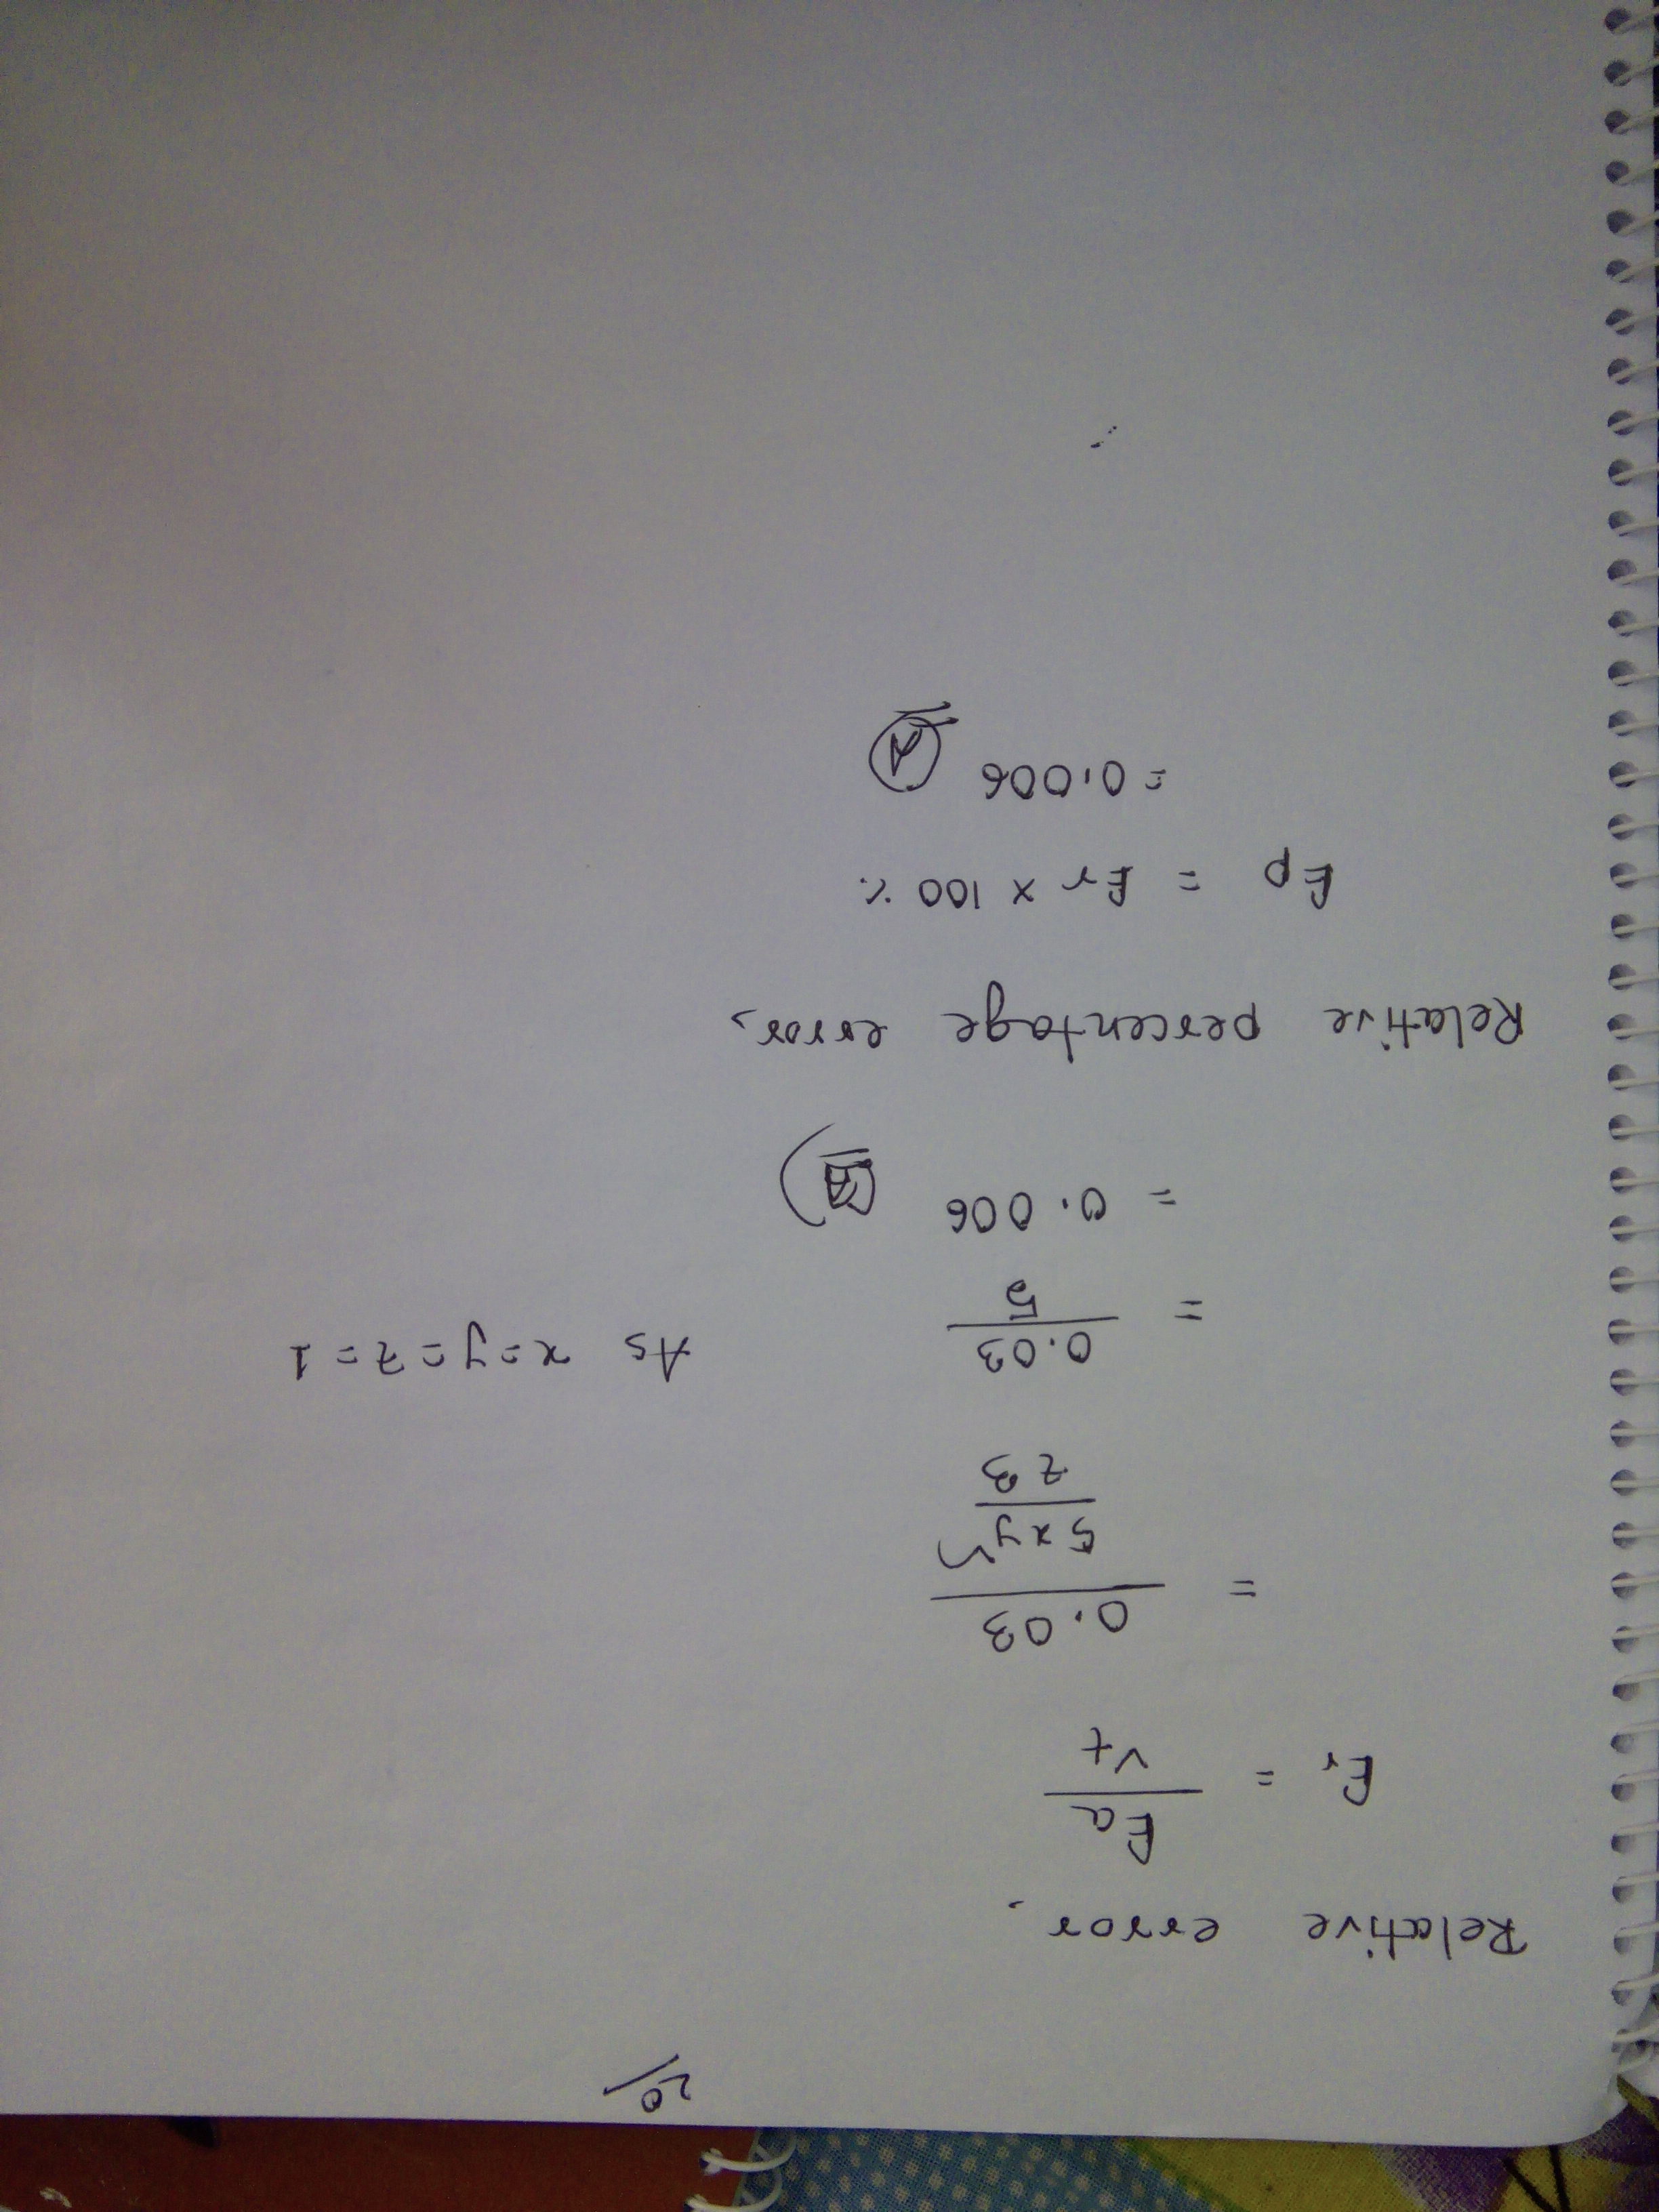 20
Relative error.
Er = Ea / Vt
= 0.03 / (5xy² / z3)
= 0.03 / 5 As x=y=z=1
= 0.006
Relative percentage error,
Ep = Er × 100 %
= 0.006